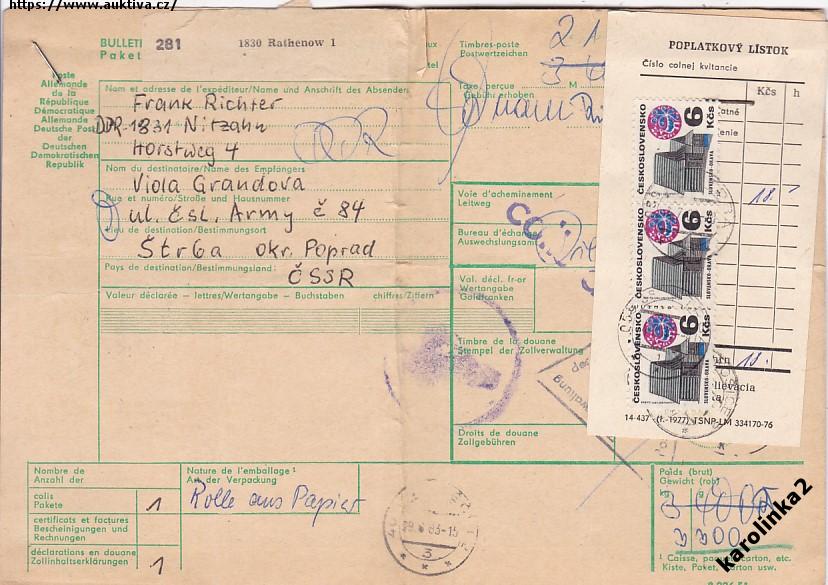 https://www.auktiva.cz/
BULLETI 281 1830 Rathenow 1
Paket
Poste
Allemande
de la
République
Démocratique
Allemande
Deutsche Post
der
Deutschen
Demokratischen
Republik
Nom et adresse de l'expéditeur/Name und Anschrift des Absenders
Frank Richter
DDR-1831 Nitzahn
Horstweg 4
Nom du destinataire/Name des Empfängers
Viola Grandova
Rue et numéro/Straße und Hausnummer
ul. čsl. Army č 84
Lieu de destination/Bestimmungsort
Štrba okr. Poprad
Pays de destination/Bestimmungsland:
ČSSR
Valeur déclarée - lettres/Wertangabe - Buchstaben chiffres/Ziffern
Timbres-poste
Postwertzeichen
21
34
Taxe perçue M
Gebühr erhoben
Voie d'acheminement
Leitweg
Bureau d'échange
Auswechslungsamt
Val. décl. fr-or
Wertangabe
Goldfranken
Timbre de la douane
Stempel der Zollverwaltung
Droits de douane
Zollgebühren
POPLATKOVÝ LÍSTOK
Číslo colnej kvitancie
Kčs h
18.-
18.-
lievácia
14-437 (I.-1977) TSNP-LM 334170-76
ČESKOSLOVENSKO 6 Kčs SLOVENSKO-ORAVA
ČESKOSLOVENSKO 6 Kčs SLOVENSKO-ORAVA
ČESKOSLOVENSKO 6 Kčs SLOVENSKO-ORAVA
Nombre de
Anzahl der
colis
Pakete 1
certificats et factures
Bescheinigungen und
Rechnungen
déclarations en douane
Zollinhaltserklärungen 1
Nature de l'emballage ¹
Art der Verpackung
Rolle aus Papier
3
Poids (brut)
Gewicht (roh)
kg g
2200
¹ Caisse, panier, carton, etc.
Kiste, Paket, Karton usw.
karolinka2